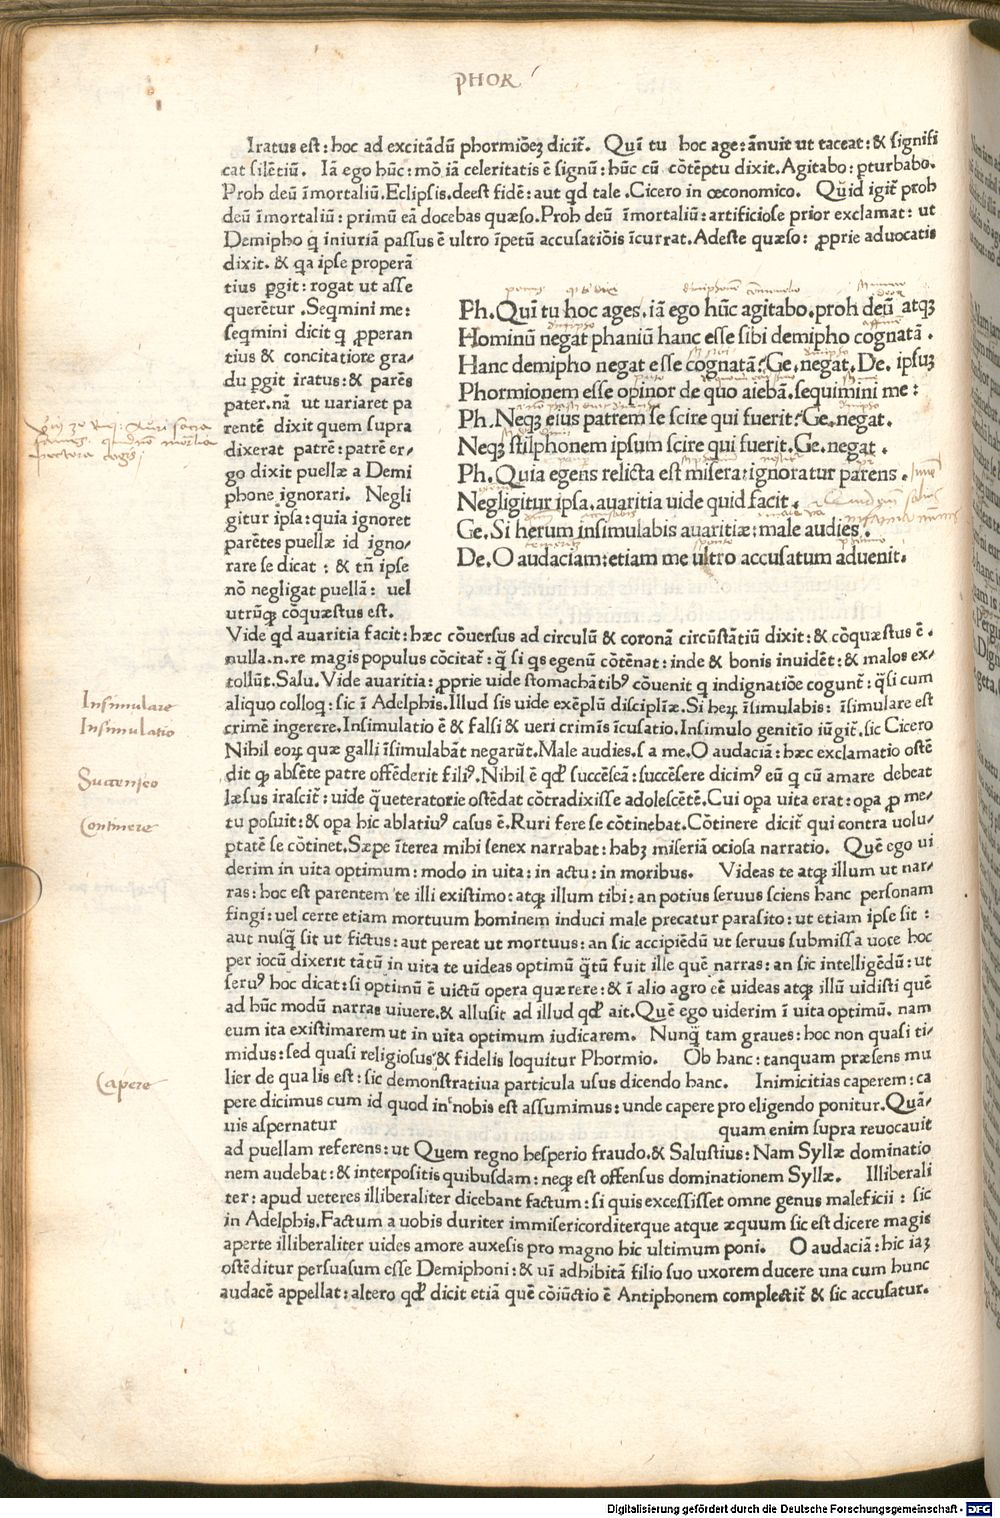 PHOR
Iratus est: hoc ad excitãdũ phormiõeȝ dicit̃. Quĩ tu hoc age: ãnuit ut taceat: & signifi
cat silẽtiũ. Iã ego hũc: mõ iã celeritatis ẽ signũ: hũc cũ cõtẽptu dixit. Agitabo: pturbabo.
Proh deũ ĩmortaliũ. Eclipsis. deest fidẽ: aut qd tale. Cicero in œconomico. Quid igit̃ proh
deũ ĩmortaliũ: primũ eã docebas quæso. Proh deũ ĩmortaliũ: artificiose prior exclamat: ut
Demipho q̃ iniuriã passus ẽ ultro ĩpetũ accusatiõis ĩcurrat. Adeste quæso: ꝓprie aduocatis
dixit. & qa ipse properã
tius pgit: rogat ut asse
querẽtur. Seqmini me:
seqmini dicit q ꝓperan
tius & concitatiore gra/
du pgit iratus: & parẽs
pater. nã ut uariaret pa
rentẽ dixit quem supra
dixerat patrẽ: patrẽ er/
go dixit puellæ a Demi
phone ignorari. Negli
gitur ipsa: quia ignoret
parẽtes puellæ id igno/
rare se dicat: & tñ ipse
nõ negligat puellã: uel
utrũqȝ cõquæstus est.
Ph. Quĩ tu hoc ages. iã ego hũc agitabo. proh deũ atqȝ
Hominũ negat phaniũ hanc esse sibi demipho cognatã.
Hanc demipho negat esse cognatã? Ge. negat. De. ipsuȝ
Phormionem esse opinor de quo aiebã. sequimini me:
Ph. Neqȝ eius patrem se scire qui fuerit? Ge. negat.
Neqȝ stilphonem ipsum scire qui fuerit. Ge. negat.
Ph. Quia egens relicta est misera: ignoratur parens.
Negligitur ipsa. auaritia uide quid facit.
Ge. Si herum insimulabis auaritiæ: male audies.
De. O audaciam: etiam me ultro accusatum aduenit.
Vide qd auaritia facit: hæc cõuersus ad circulũ & coronã circũstãtiũ dixit: & cõquæstus ẽ.
nulla. n. re magis populus cõcitat̃: q̃ si qs egenũ cõtẽnat: inde & bonis inuidẽt: & malos ex/
tollũt. Salu. Vide auaritia: ꝓprie uide stomachãtibꝰ cõuenit q indignatiõe cogunt̃: q̃si cum
aliquo colloq: sic ĩ Adelphis. Illud sis uide exẽplũ disciplĩæ. Si heꝝ ĩsimulabis: ĩsimulare est
crimẽ ingerere. Insimulatio ẽ & falsi & ueri crimĩs ĩcusatio. Insimulo genitio iũgit̃. sic Cicero
Nihil eoꝝ quæ galli ĩsimulabãt negarũt. Male audies. s a me. O audaciã: hæc exclamatio ostẽ
dit qȝ absẽte patre offẽderit filiꝰ. Nihil ẽ qđ succẽseã: succẽsere dicimꝰ eũ q cũ amare debeat
læsus irascit̃: uide q̃ueteratorie ostẽdat cõtradixisse adolescẽtẽ. Cui opa uita erat: opa ꝓ me/
tu posuit: & opa hic ablatiuꝰ casus ẽ. Ruri fere se cõtinebat. Cõtinere dicit̃ qui contra uolu/
ptatẽ se cõtinet. Sæpe ĩterea mihi senex narrabat: habȝ miseriã ociosa narratio. Quẽ ego ui
derim in uita optimum: modo in uita: in actu: in moribus. Videas te atqȝ illum ut nar/
ras: hoc est parentem te illi existimo: atqȝ illum tibi: an potius seruus sciens hanc personam
fingi: uel certe etiam mortuum hominem induci male precatur parasito: ut etiam ipse sit:
aut nusq̃ sit ut fictus: aut pereat ut mortuus: an sic accipiẽdũ ut seruus submissa uoce hoc
per iocũ dixerit tãtũ in uita te uideas optimũ q̃tũ fuit ille quẽ narras: an sic intelligẽdũ: ut
seruꝰ hoc dicat: si optimũ ẽ uictũ opera quærere: & ĩ alio agro eẽ uideas atqȝ illũ uidisti quẽ
ad hũc modũ narras uiuere. & allusit ad illud qđ ait. Quẽ ego uiderim ĩ uita optimũ. nam
eum ita existimarem ut in uita optimum iudicarem. Nunq̃ tam graues: hoc non quasi ti/
midus: sed quasi religiosus & fidelis loquitur Phormio. Ob hanc: tanquam præsens mu
lier de qua lis est: sic demonstratiua particula usus dicendo hanc. Inimicitias caperem: ca
pere dicimus cum id quod in nobis est assumimus: unde capere pro eligendo ponitur. Quã/
uis aspernatur quam enim supra reuocauit
ad puellam referens: ut Quem regno hesperio fraudo. & Salustius: Nam Syllæ dominatio
nem audebat: & interpositis quibusdam: neqȝ est offensus dominationem Syllæ. Illiberali
ter: apud ueteres illiberaliter dicebant factum: si quis excessisset omne genus maleficii: sic
in Adelphis. Factum a uobis duriter immisericorditerque atque æquum sic est dicere magis
aperte illiberaliter uides amore auxesis pro magno hic ultimum poni. O audaciã: hic iaȝ
ostẽditur persuasum esse Demiphoni: & uĩ adhibitã filio suo uxorem ducere una cum hunc
audacẽ appellat: altero qđ dicit etiã quẽ cõiũctio ẽ Antiphonem complectit̃ & sic accusatur.
Insimulare
Insimulatio
Succenseo
Continere
Capere
Digitalisierung gefördert durch die Deutsche Forschungsgemeinschaft - DFG